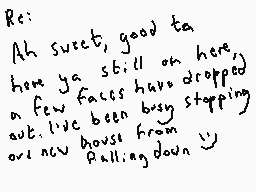 Re:
Ah sweet, good ta
have ya still on here,
a few faces have dropped
out. I've been busy stopping
our new house from
falling down :)